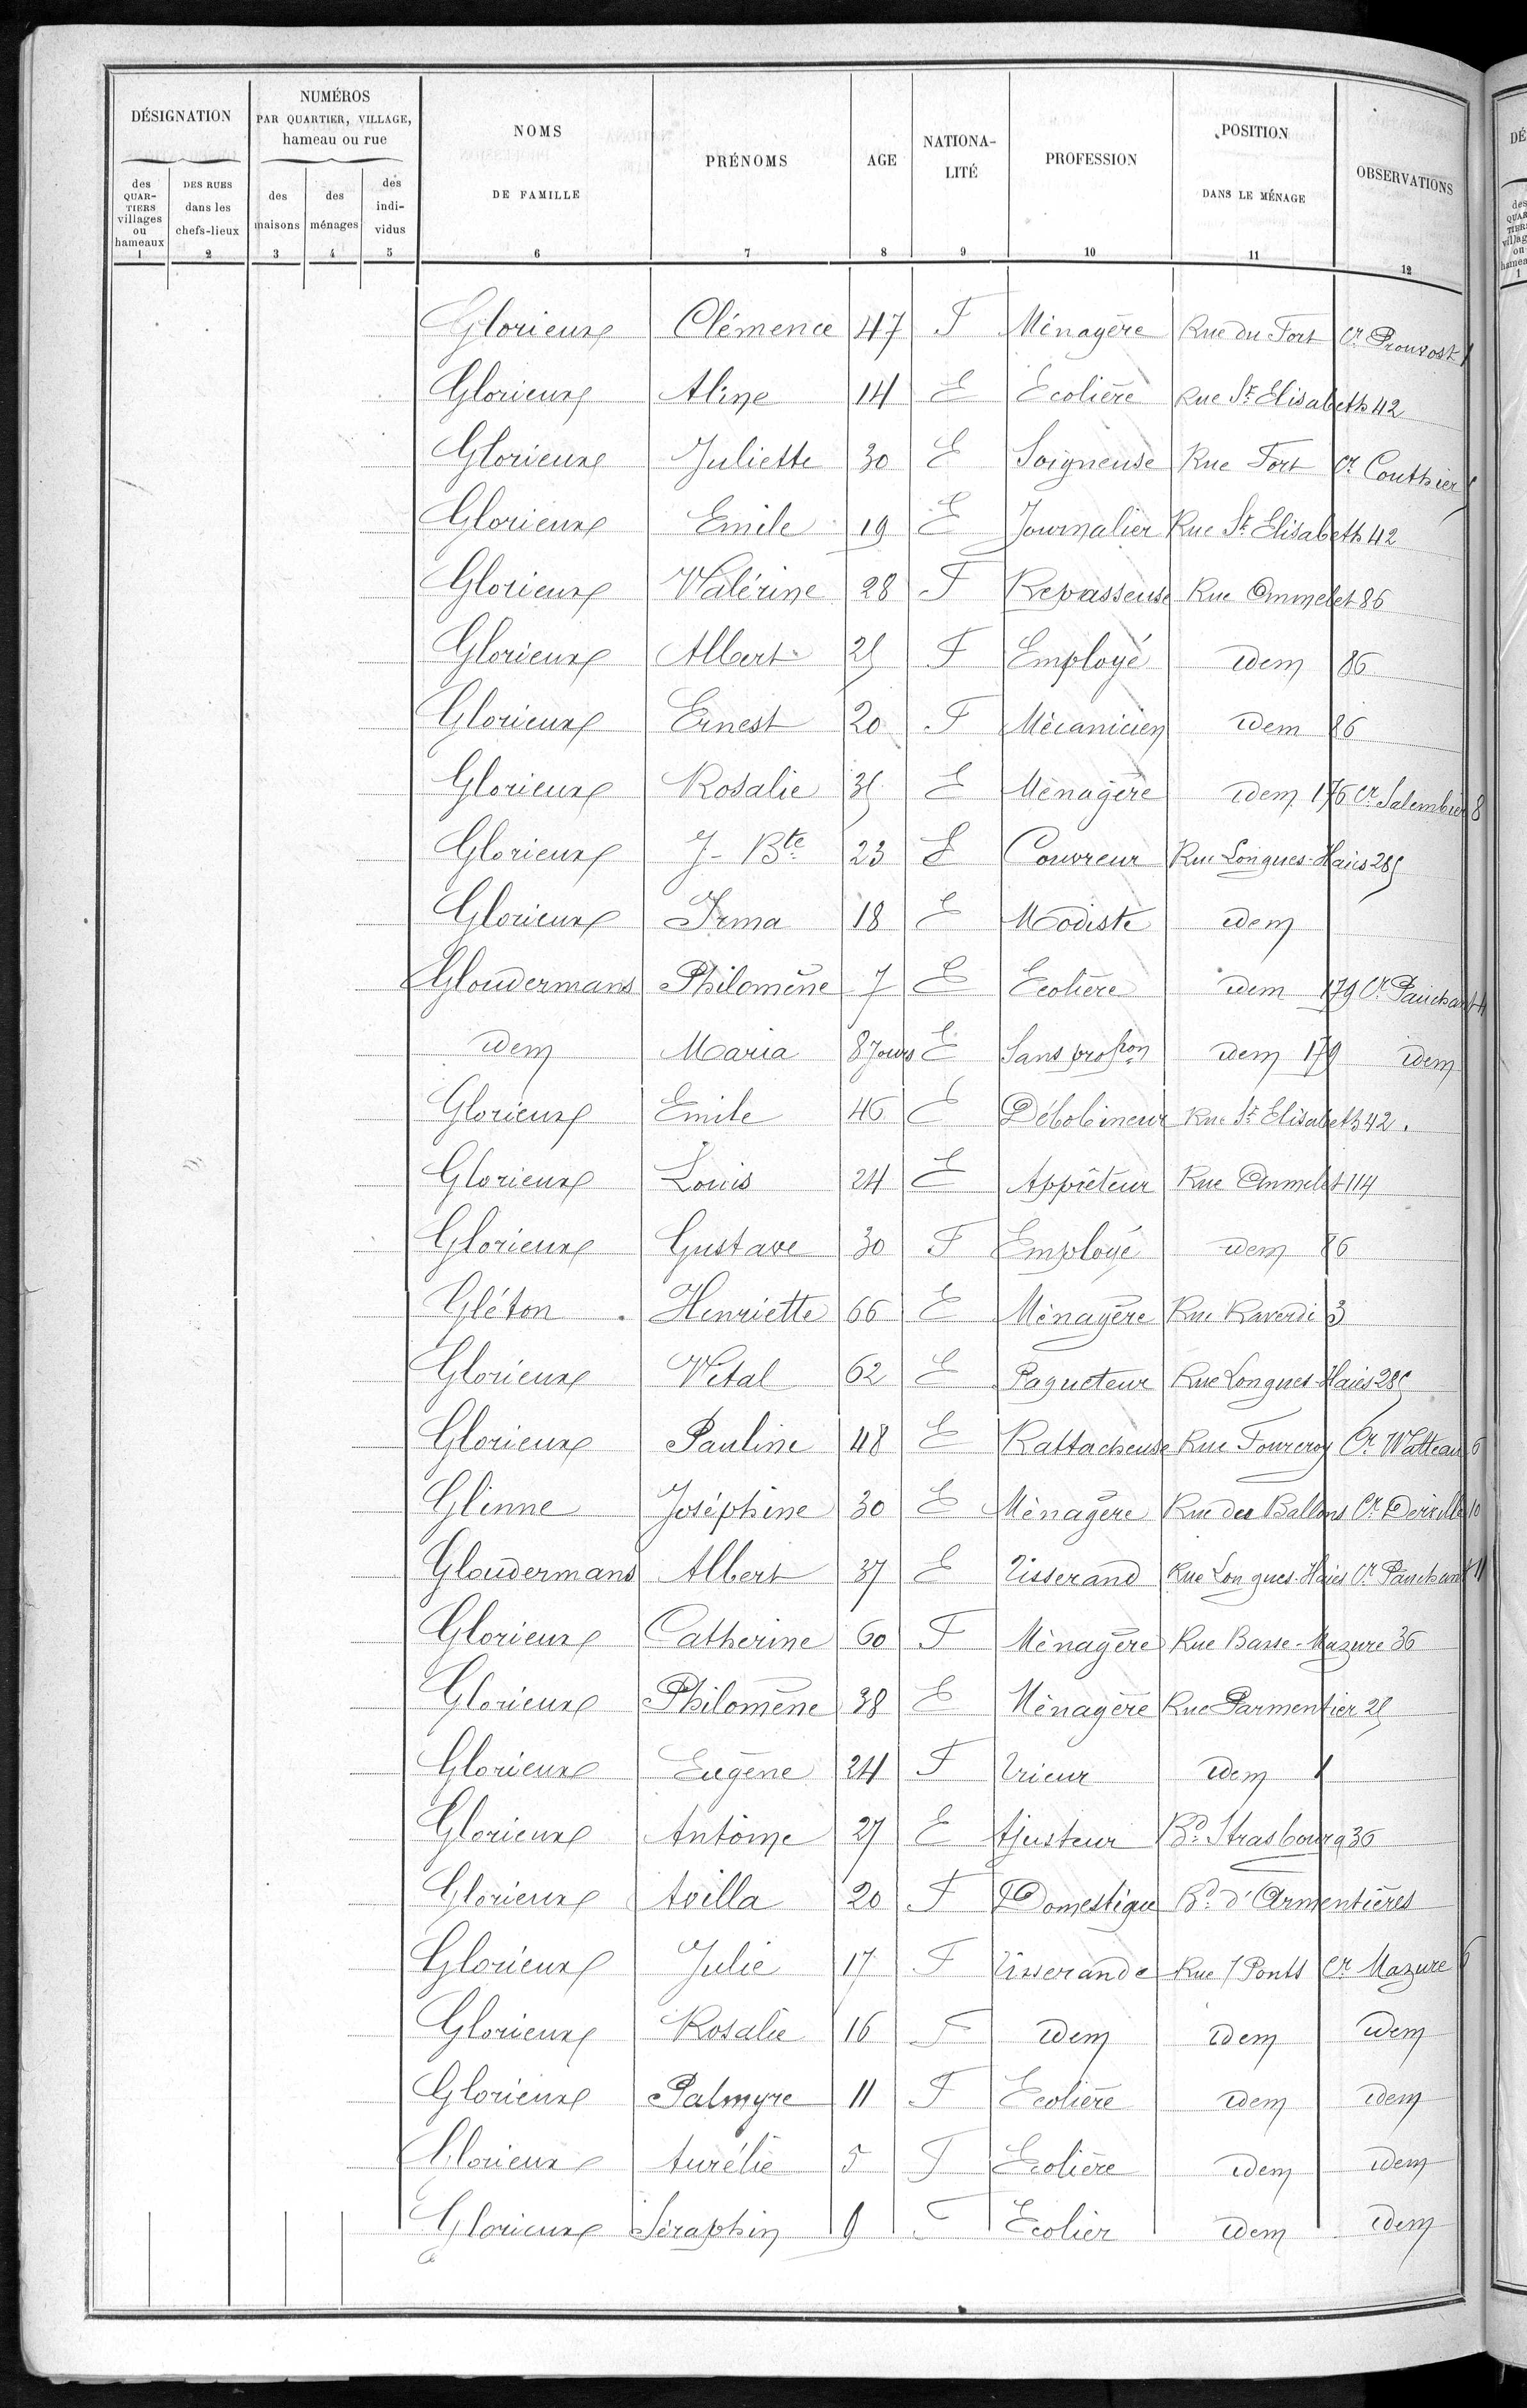 DÉSIGNATION
NUMÉROS
PAR QUARTIER, VILLAGE,
hameau ou rue
NOMS
DE FAMILLE
PRÉNOMS
AGE
NATIONA-
LITÉ
PROFESSION
POSITION
DANS LE MÉNAGE
OBSERVATIONS
des QUAR-TIERS villages ou hameaux
DES RUES dans les chefs-lieux
des maisons
des ménages
des indi-vidus
1 2 3 4 5 6 7 8 9 10 11 12
Glorieux Clémence 47 F Ménagère Rue du Fort Cr Prouvost 1
Glorieux Aline 14 E Ecolière Rue Ste Elisabeth 42
Glorieux Juliette 30 E Soigneuse Rue Fort Cr Couthier 5
Glorieux Emile 19 E Journalier Rue Ste Elisabeth 42
Glorieux Valérine 28 F Repasseuse Rue Ommelet 86
Glorieux Albert 25 F Employé idem 86
Glorieux Ernest 20 F Mécanicien idem 86
Glorieux Rosalie 35 E Ménagère idem 176 Cr Salembier 8
Glorieux J-Bte 23 E Couvreur Rue Longues-Haies 285
Glorieux Irma 18 E Modiste idem
Gloudermans Philomène 7 E Ecolière idem 179 Cr Pauchant 11
idem Maria 8 Jours E Sans profon idem 179 idem
Glorieux Emile 46 E Débobineur Rue Ste Elisabeth 42.
Glorieux Louis 24 E Apprêteur Rue Ommelet 114
Glorieux Gustave 30 F Employé idem 86
Gléton Henriette 66 E Ménagère Rue Raverdi 3
Glorieux Vital 62 E Paqueteur Rue Longues-Haies 285
Glorieux Pauline 48 E Rattacheuse Rue Fourcroy Cr Watteau 6
Glinne Joséphine 30 E Ménagère Rue des Ballons Cr Derville 10
Gloudermans Albert 37 E Tisserand Rue Longues-Haies Cr Pauchant 11
Glorieux Catherine 60 F Ménagère Rue Basse-Mazure 36
Glorieux Philomène 38 E Ménagère Rue Parmentier 25
Glorieux Eugène 24 F Trieur idem 1
Glorieux Antoine 27 E Ajusteur Bd Strasbourg 36
Glorieux Avilla 20 F Domestique Bd d'Armentières
Glorieux Julie 17 F Tisserande Rue 7 Ponts Cr Mazure 6
Glorieux Rosalie 16 F idem idem idem
Glorieux Palmyre 11 F Ecolière idem idem
Glorieux Aurélie 5 F Ecolière idem idem
Glorieux Séraphin 9 F Ecolier idem idem